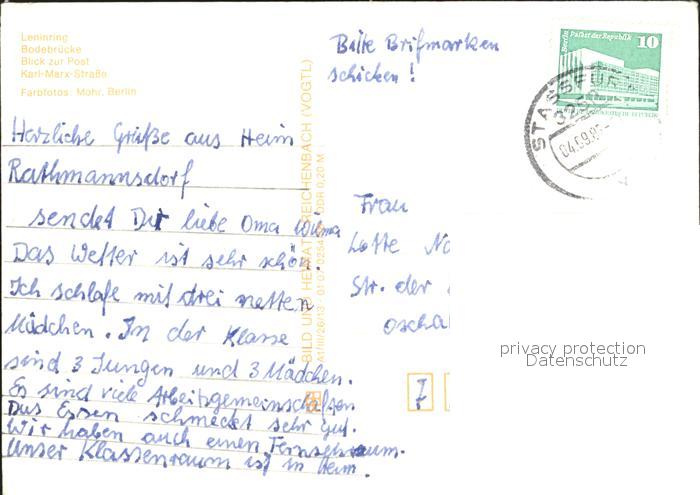 Leninring
Bodebrücke
Blick zur Post
Karl-Marx-Straße
Farbfotos: Mohr, Berlin
Bitte Brifmarken
schicken!
Berlin Palast der Republik 10
STASSFURT
325
04.09.85
Herzliche Grüße aus Heim
Rathmannsdorf
sendet Dir liebe Oma Wilma
Das Wetter ist sehr schön.
Ich schlafe mit drei netten
Mädchen. In der Klasse
sind 3 Jungen und 3 Mädchen.
Es sind viele Arbeitsgemeinschaften
Das Essen schmeckt sehr gut.
Wir haben auch einen Fernsehraum.
Unser Klassenraum ist in Heim.
BILD UND HEIMAT REICHENBACH (VOGTL)
A1/III/26/13 01 07 0254 DDR 0,20 M
Frau
Lotte No
Str. der
Oscha
7
privacy protection
Datenschutz